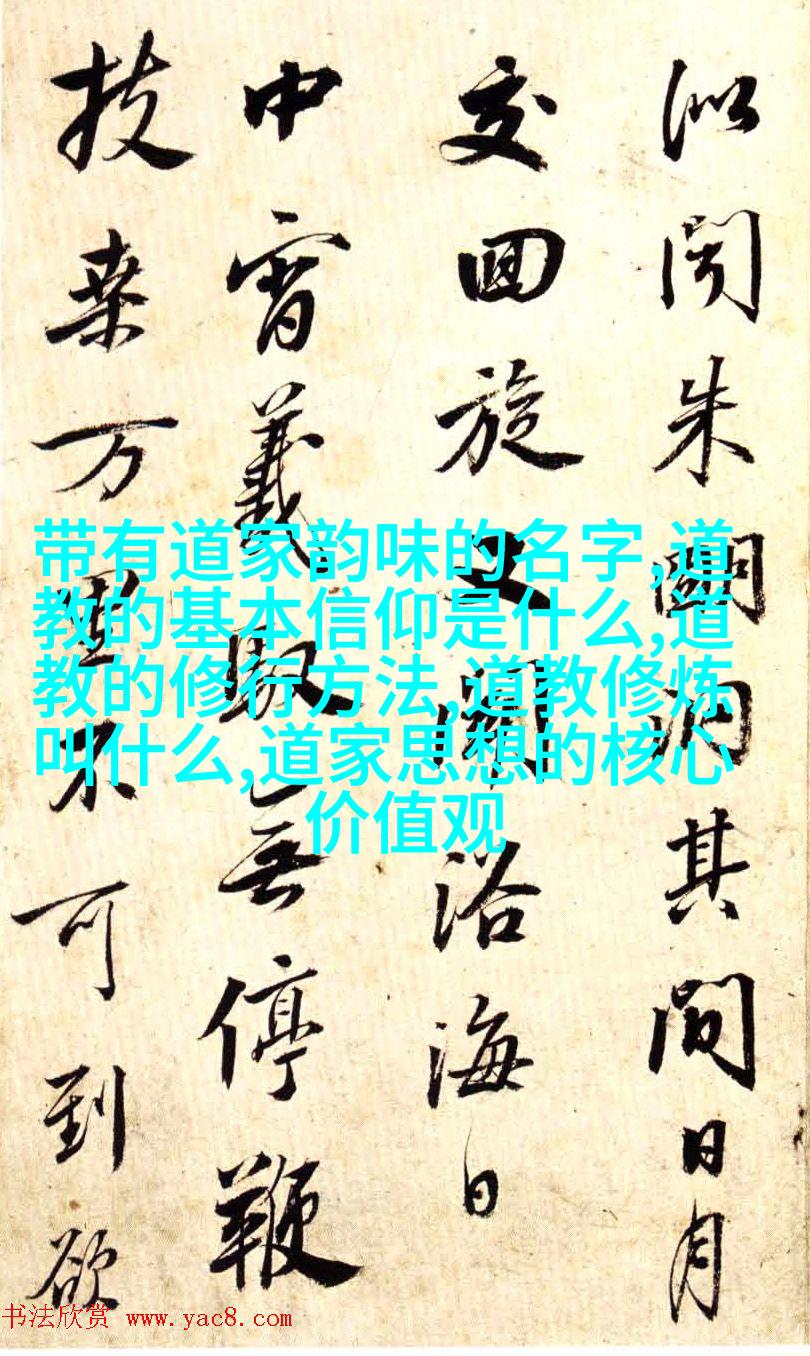 似聞朱闕洞其間日月
交回旋又聞浴海日
中宵羲馭無停鞭
扶桒万里不可到欲
带有道家韵味的名字,道
教的基本信仰是什么,道
教的修行方法,道教修炼
叫什么,道家思想的核心
价值观
书法欣赏 www.yac8.com